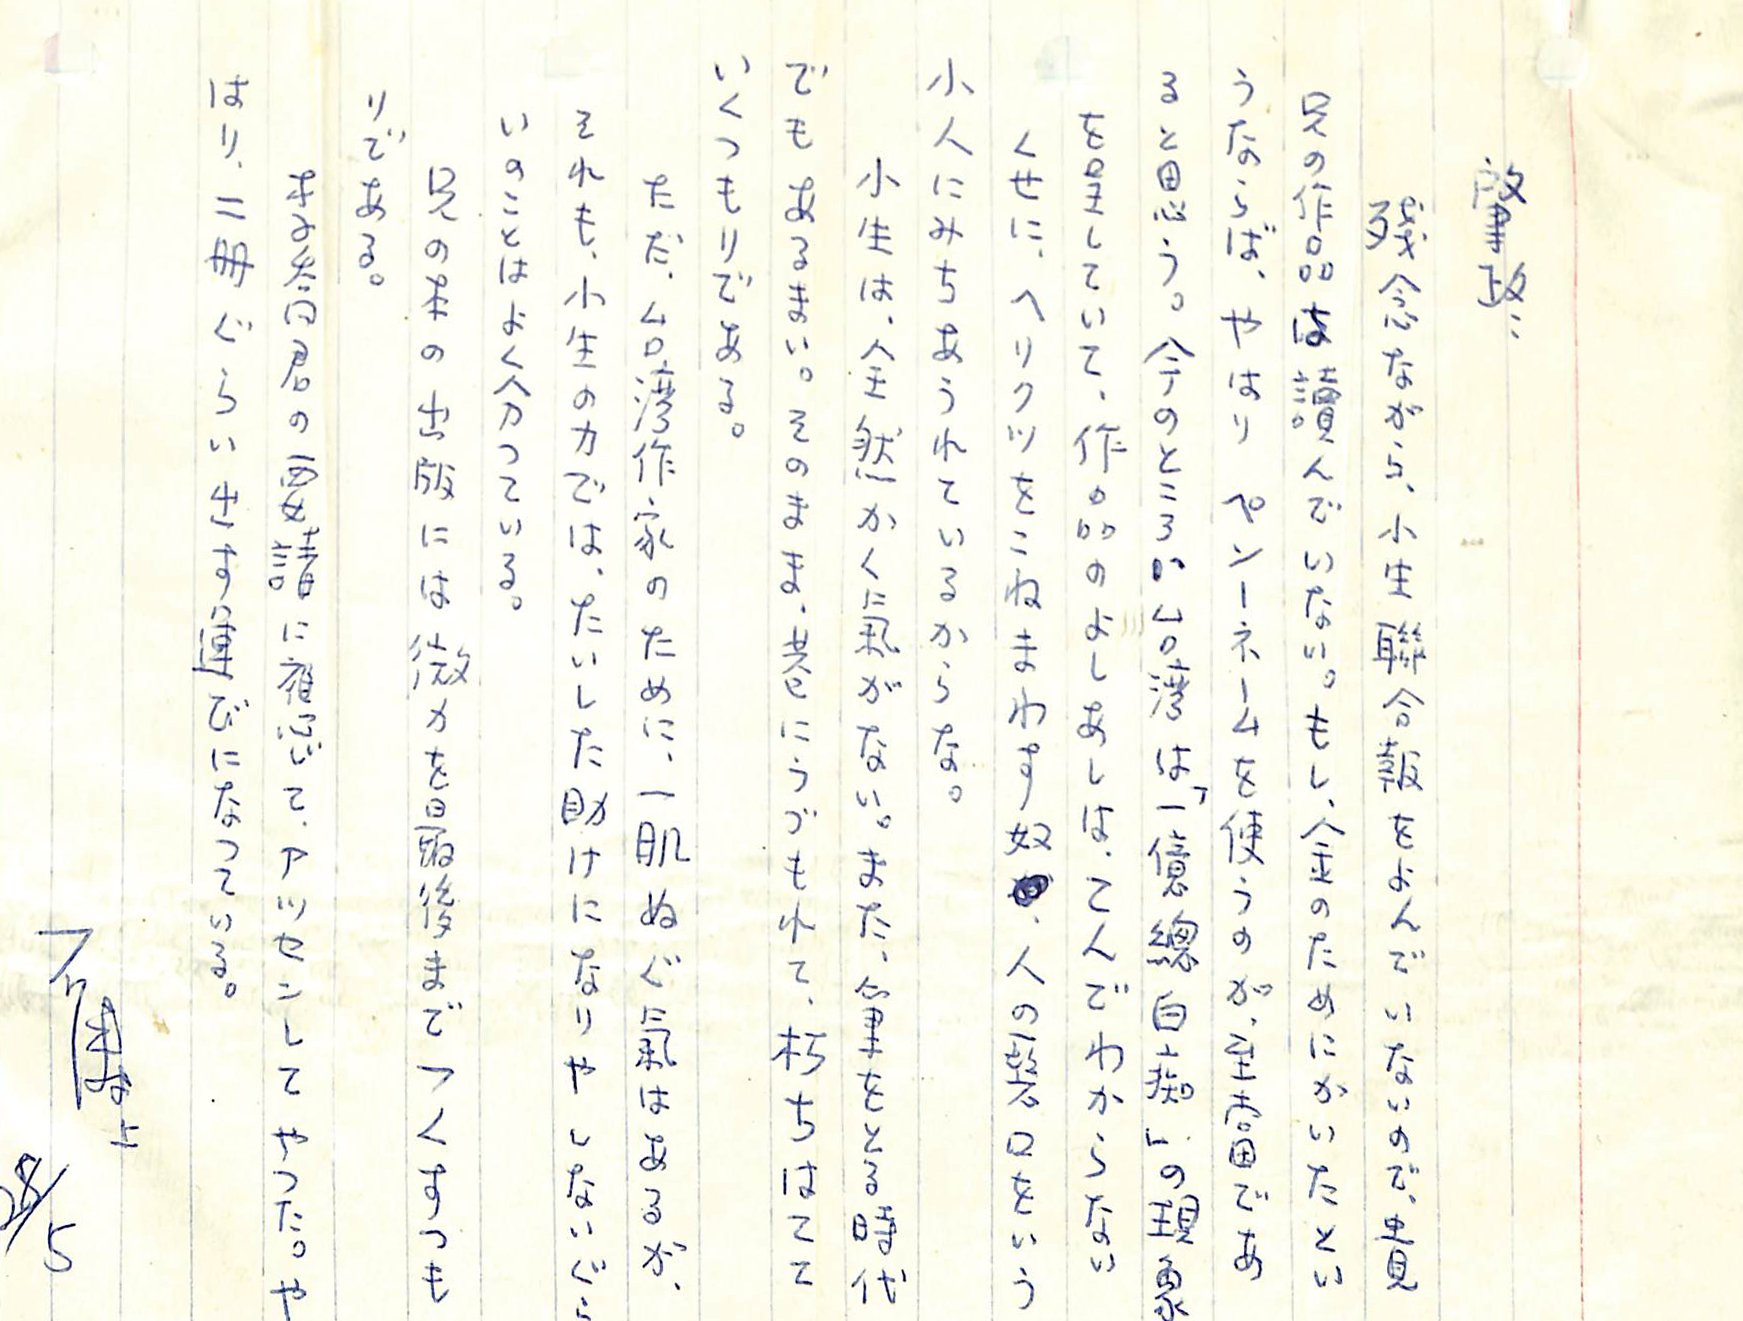 肇政:
殘念ながら、小生聯合報をよんでいないので、貴
兄の作品は讀んでいない。もし、金のためにかいたとい
うならば、やはり ペンーネームを使うのが、至當であ
ると思う。今のところ、台湾は「一億總白痴」の現象
を呈していて、作品のよしあしは、てんでわからない
くせに、ヘリクツをこねまわす奴、人の惡口をいう
小人にみちあふれているからな。
小生は、全然かく氣がない。また、筆をとる時代
でもあるまい。そのまま、巷にうづもれて、朽ちはてて
いくつもりである。
ただ、台湾作家のために、一肌ぬぐ氣はあるが、
それも、小生の力では、たいした助けになりやしないぐら
いのことはよく分つている。
兄の本の出版には微力を最後までつくすつも
りである。
君の要請に應じて、アッセンしてやつた。や
はり、二冊ぐらい出す運びになつている。
上
28/5